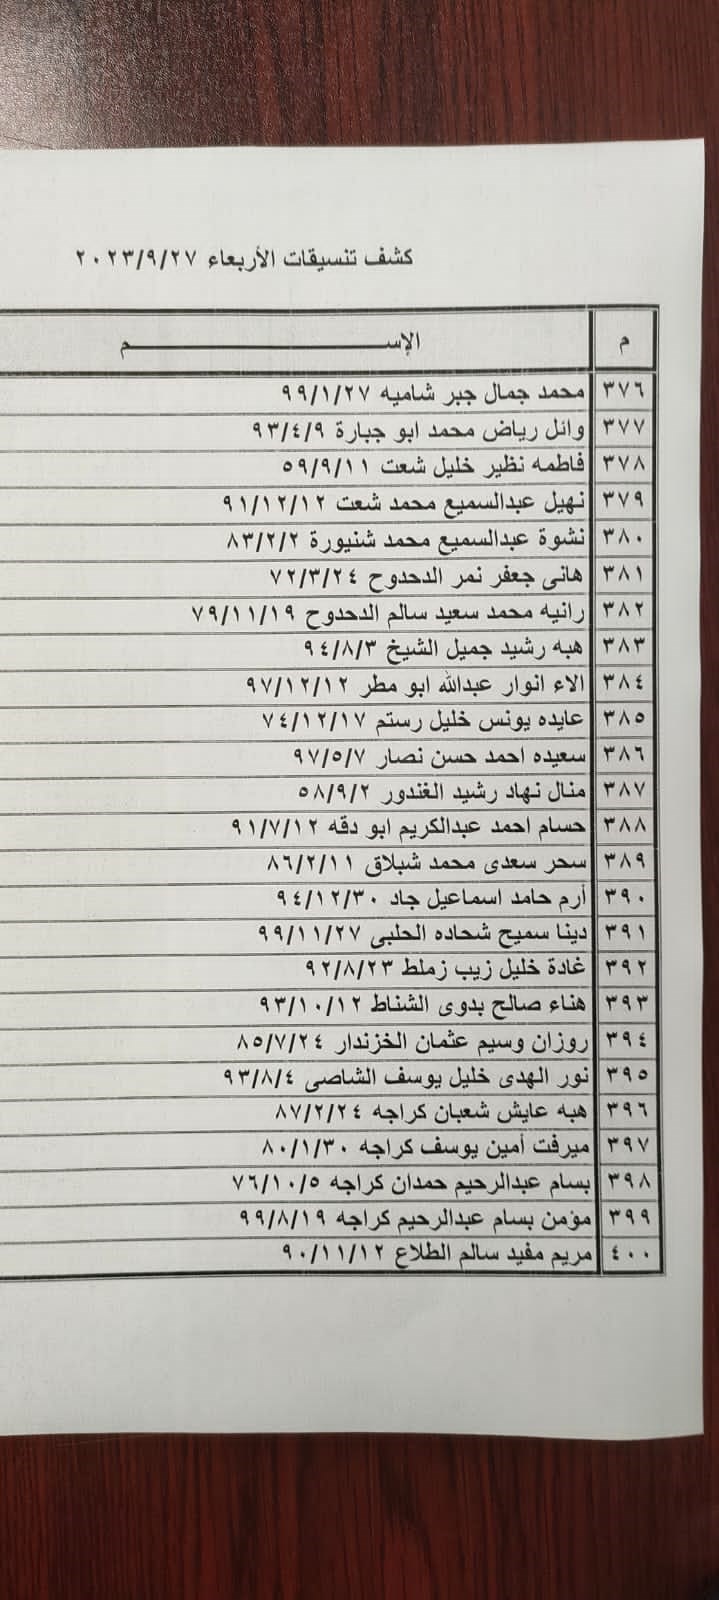 كشف تنسيقات الأربعاء ٢٠٢٣/٩/٢٧
م الإســـــــــــــم
٣٧٦ محمد جمال جبر شاميه ٩٩/١/٢٧
٣٧٧ وائل رياض محمد ابو جبارة ٩٣/٤/٩
٣٧٨ فاطمه نظير خليل شعت ٥٩/٩/١١
٣٧٩ نهيل عبدالسميع محمد شعت ٩١/١٢/١٢
٣٨٠ نشوة عبدالسميع محمد شنيورة ٨٣/٢/٢
٣٨١ هانى جعفر نمر الدحدوح ٧٢/٣/٢٤
٣٨٢ رانيه محمد سعيد سالم الدحدوح ٧٩/١١/١٩
٣٨٣ هبه رشيد جميل الشيخ ٩٤/٨/٣
٣٨٤ الاء انوار عبدالله ابو مطر ٩٧/١٢/١٢
٣٨٥ عايده يونس خليل رستم ٧٤/١٢/١٧
٣٨٦ سعيده احمد حسن نصار ٩٧/٥/٧
٣٨٧ منال نهاد رشيد الغندور ٥٨/٩/٢
٣٨٨ حسام احمد عبدالكريم ابو دقه ٩١/٧/١٢
٣٨٩ سحر سعدى محمد شبلاق ٨٦/٢/١١
٣٩٠ أرم حامد اسماعيل جاد ٩٤/١٢/٣٠
٣٩١ دينا سميح شحاده الحلبى ٩٩/١١/٢٧
٣٩٢ غادة خليل زيب زملط ٩٢/٨/٢٣
٣٩٣ هناء صالح بدوى الشناط ٩٣/١٠/١٢
٣٩٤ روزان وسيم عثمان الخزندار ٨٥/٧/٢٤
٣٩٥ نور الهدى خليل يوسف الشاصى ٩٣/٨/٤
٣٩٦ هبه عايش شعبان كراجه ٨٧/٢/٢٤
٣٩٧ ميرفت أمين يوسف كراجه ٨٠/١/٣٠
٣٩٨ بسام عبدالرحيم حمدان كراجه ٧٦/١٠/٥
٣٩٩ مؤمن بسام عبدالرحيم كراجه ٩٩/٨/١٩
٤٠٠ مريم مفيد سالم الطلاع ٩٠/١١/١٢